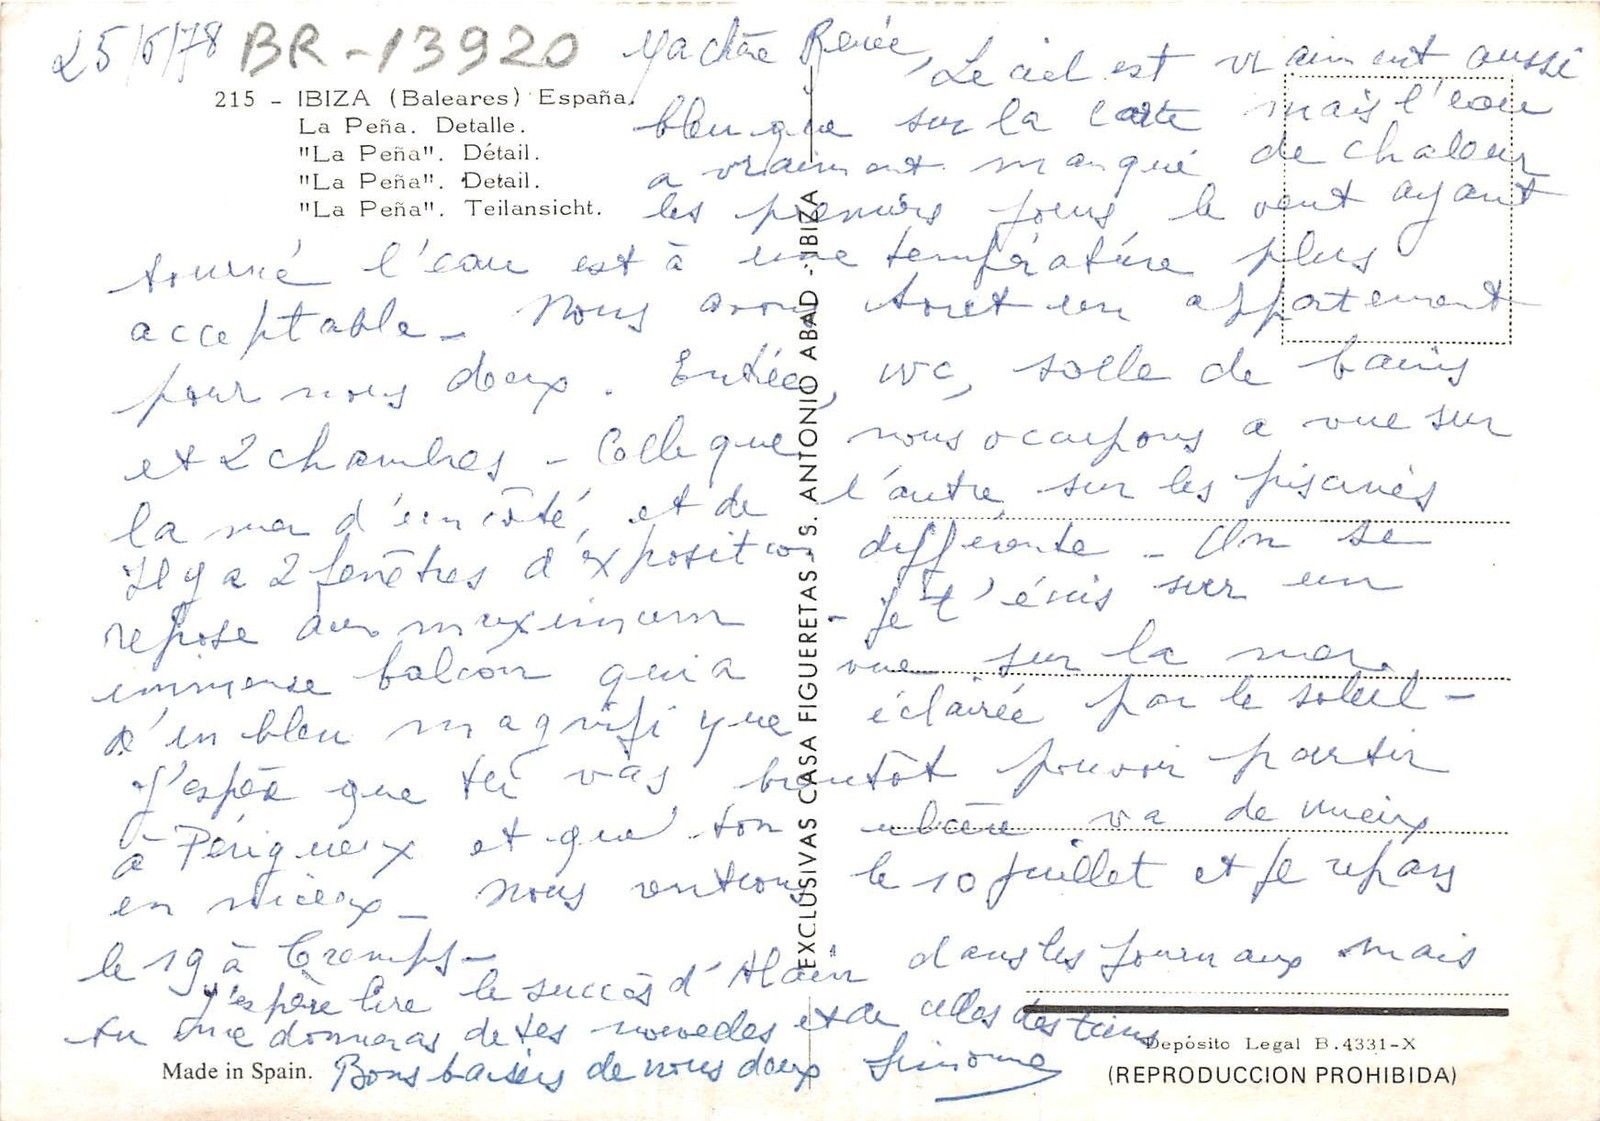 25/6/78 BR-13920
215 - IBIZA (Baleares) España.
La Peña. Detalle.
"La Peña". Détail.
"La Peña". Detail.
"La Peña". Teilansicht.
Ma chère Renée,
Le ciel est vraiment aussi
bleu que sur la carte mais l'eau
a vraiment manqué de chaleur
les premiers jours, le vent ayant
tourné l'eau est à une température plus
acceptable - Nous avons tout un appartement
pour nous deux. Entrée, WC, salle de bains
et 2 chambres - Celle que nous occupons a vue sur
la mer d'un côté, et de l'autre sur les piscines
Il y a 2 fenêtres d'exposition différente - On se
repose au maximum - Je t'écris sur un
immense balcon qui a vue sur la mer
d'un bleu magnifique éclairée par le soleil -
J'espère que tu vas bientôt pouvoir partir
à Périgueux et que ton va de mieux
en mieux - Nous rentrons le 10 juillet et je repars
le 19 à Cremps -
J'espère lire le succès d'Alain dans les journaux mais
tu me donneras de tes nouvelles et de celles des tiens
Bons baisers de nous deux Simone
EXCLUSIVAS CASA FIGUERETAS - S. ANTONIO ABAD - IBIZA
Made in Spain.
Depósito Legal B.4331-X
(REPRODUCCION PROHIBIDA)